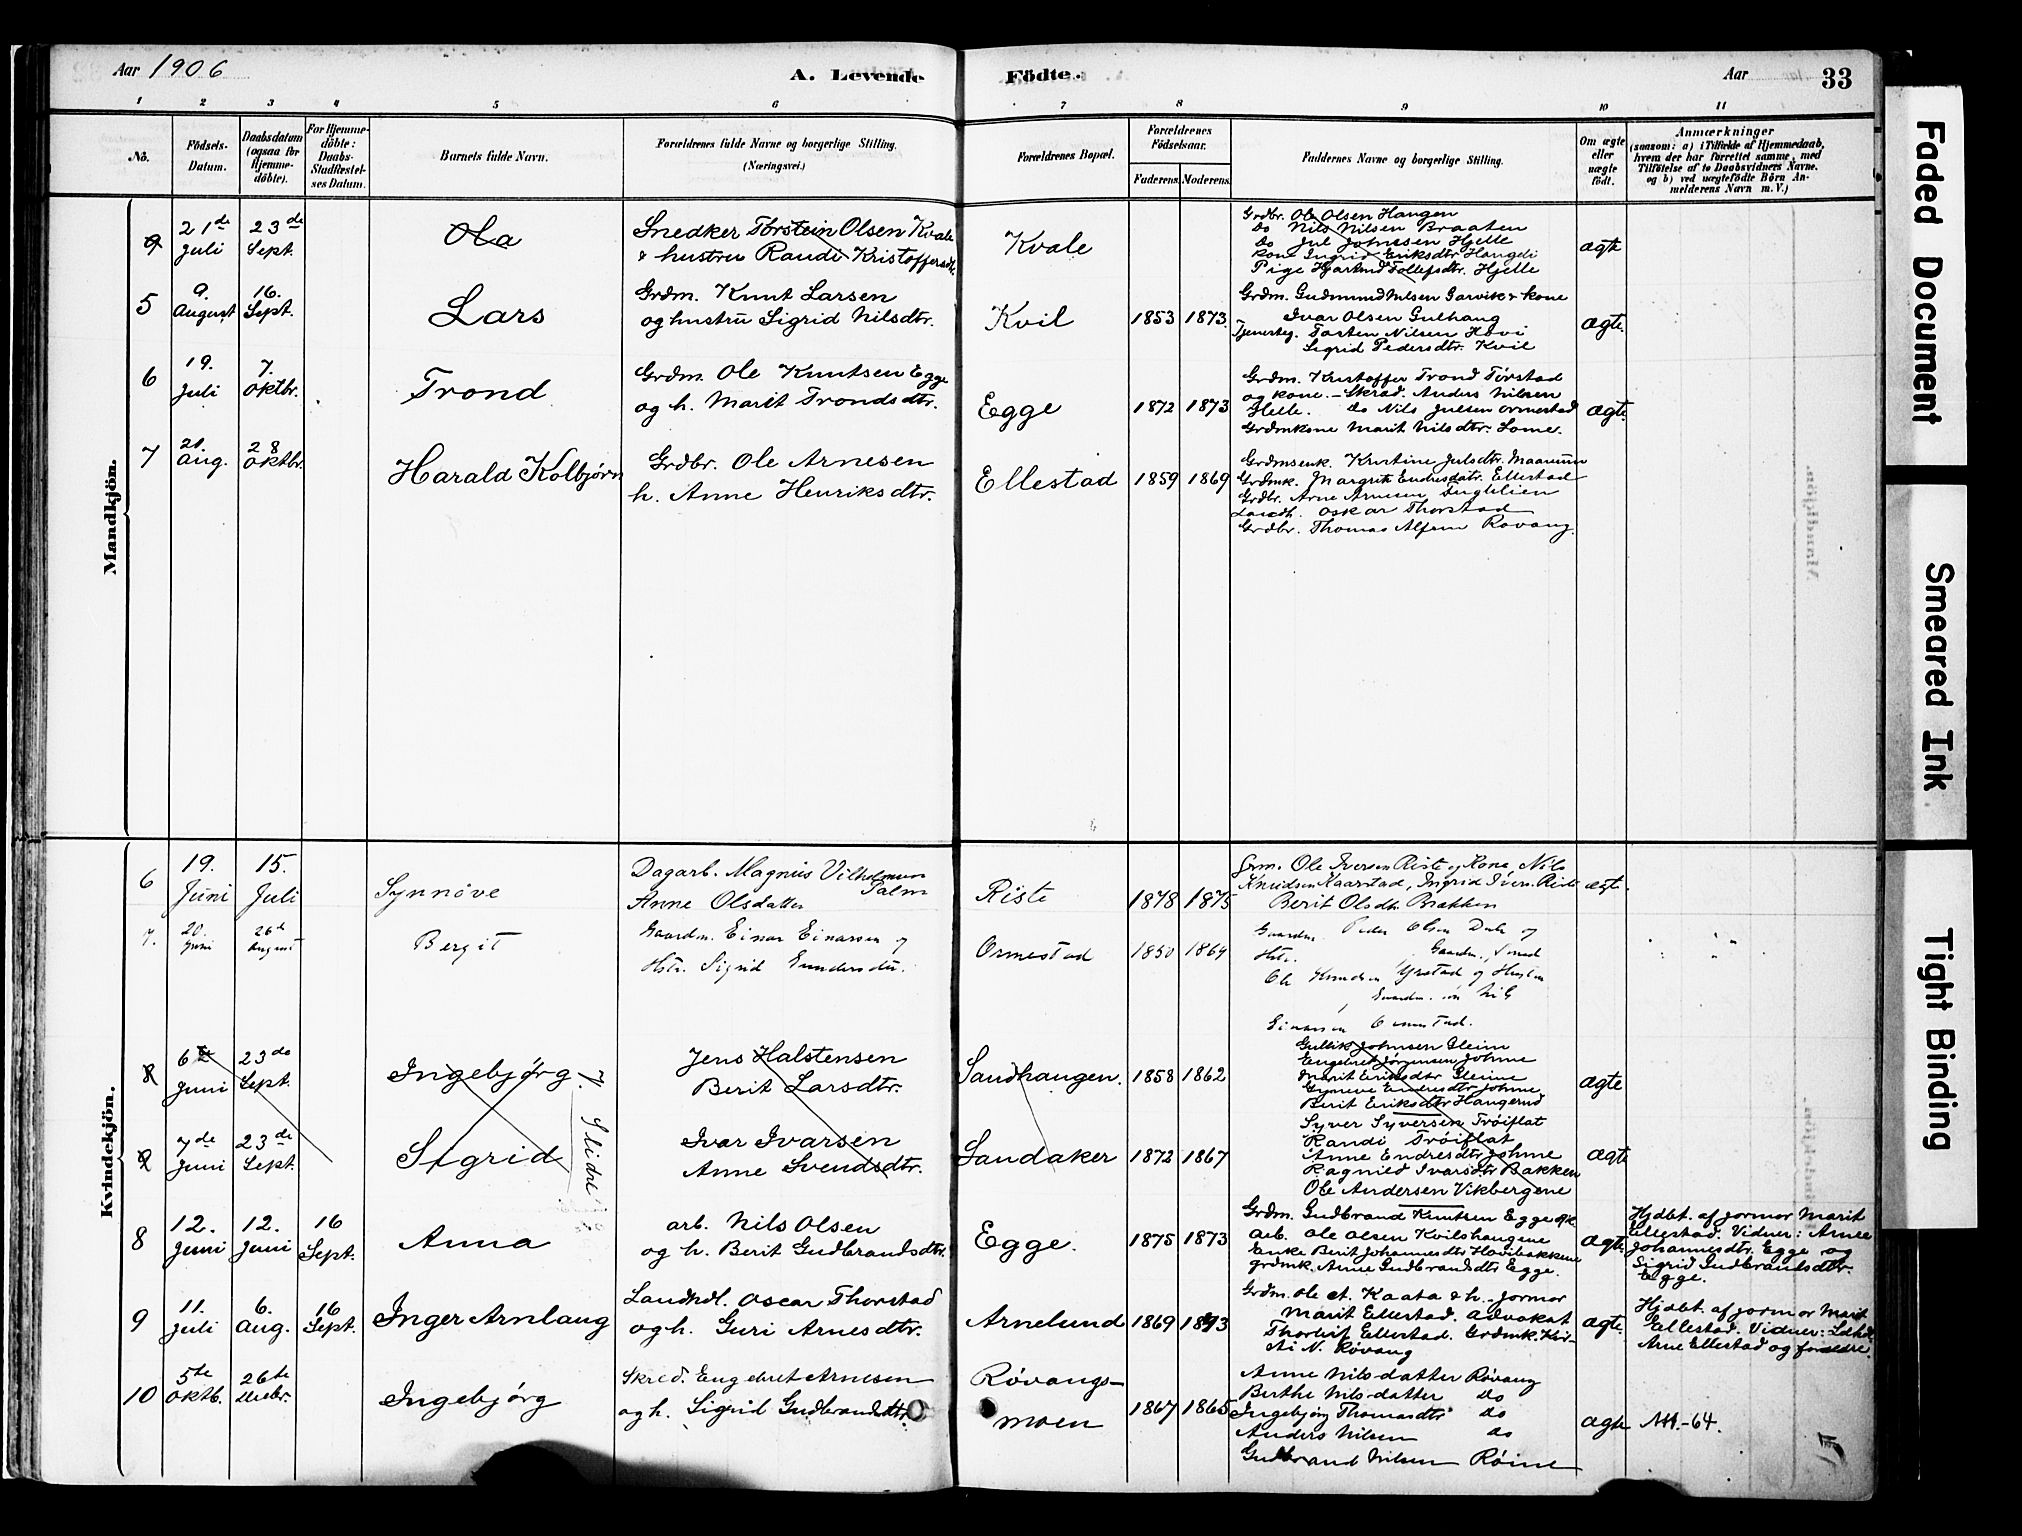 Aar 1906
A. Levende Födte.
Aar 33
1 2 3 4 5 6 7 8 9 10 11
No.
Födsels-Datum.
Daabsdatum (ogsaa for Hjemme-döbte).
For Hjemme-döbte: Daabs-Stadfæstel-ses Datum.
Barnets fulde Navn.
Forældrenes fulde Navne og borgerlige Stilling. (Næringsvei.)
Forældrenes Bopæl.
Forældrenes Födselsaar.
Faderens. Moderens.
Faddernes Navne og borgerlige Stilling.
Om ægte eller uægte födt.
Anmærkninger
(saasom: a) i Tilfælde af Hjemmedaab, hvem der har forrettet samme, med Tilföielse af to Daabsvidners Navne. og b) ved uægtefödte Börn An-melderens Navn m. V.)
Mandkjön.
21de Juli
23de Sept.
Ola
Snedker Torstein Olsen Kvale
& hustru Randi Kristoffersdtr.
Kvale
Grdbr. Ole Olsen Haugen
Do Nils Nilsen Braaten
Do Jul Johnsen Hjelle
Kone Ingrid Eriksdtr.
Pige Tollefsdtr. Hjelle
ægte
5
9. August
16. Sept.
Lars
Grdm. Knut Larsen
og hustru Sigrid Nilsdtr.
Kvil
1853 1873
Grdm. Gudmund Nilsen Garvik & kone
Ivar Olsen Gulhaug
Tosten Nilsen Hovi
Sigrid Pedersdtr. Kvil
ægte.
6
19. Juli
7. Oktbr.
Trond
Grdm. Ole Knutsen Egge
og h. Marit Trondsdtr.
Egge
1872 1873
Grdm. Kristoffer Trond Törstad
og kone. - Skræd. Anders Nilsen
Helle. Do Nils Julsen Ormestad
Grdmkone Marit Nilsdtr. Lome.
ægte.
7
20. Aug.
28 Oktbr.
Harald Kolbjørn
Grdbr. Ole Arnesen
h. Anne Henriksdtr.
Ellestad
1859 1869
Grdmsenk. Kristine Julsdtr.
Grdmk. Margrit Endresdatr. Ellestad
Grdbr. Arne Arnesen
Landh. Oskar Thorstad
Grdbr. Thomas Alfsen Rovang.
Kvindekjön.
6
19. Juni
15. Juli
Synnöve
Dagarb. Magnus Vilhelmsen Palm
Anne Olsdatter
Riste
1878 1875
Grm. Ole Iversen Riste og Kone, Nils
Knudsen Kaarstad, Ingrid Ivers. Riste
Berit Olsdtr. Bakken
ægte.
7.
20. Juni
26de August
Bergit
Gaardm. Einar Einarsen og
Hstr. Sigrid
Ormestad
1850 1864
Gaardm. Peder Olsen Dale og
Hstr.
Ole Knudsen
Einarsen Ormestad.
8
6te Juni
23de Sept.
Ingebjörg
Jens Halstensen
Berit Larsdtr.
Sandhaugen.
1858 1862
Gullik Johnsen Gleine
Engebret Jørgensen Johme
Marit Eriksdtr Gleine
Gyneve Endresdtr Johme
Berit Eriksdtr Haugerud
ægte
7de Juni
23de Sept.
Sigrid
Slidre
Ivar Ivarsen
Anne Svendsdtr.
Sandaker
1872 1867
Syver Syversen Tröiflat
Randi Tröiflat
Anne Endresdtr Johme
Ragnild Ivarsdtr Bakken
Ole Andersen Vikbergene
ægte
8
12. Juni
12. Juni
16 Sept.
Anna
arb. Nils Olsen
og h. Berit Gudbrandsdtr.
Egge.
1875 1873
Grdm. Gudbrand Knutsen Egge
Arb. Ole Olsen Kvilshaugene
Enke Berit Johannesdtr Hovibakkene
grdmk. Anne Gudbrandsdtr Egge.
ægte
Hjdbt. af jormor Marit
Ellestad. Vidner: Arne
Johannesdtr. Egge og
Sigrid Gudbrandsdtr.
Egge.
9
11. Juli
6. Aug.
16 Sept.
Inger Arnlaug
Landhdl. Oscar Thorstad
og h. Guri Arnesdtr.
Arnelund
1869 1873
Grdm. Ole A. Kaata & h. Jormor
Marit Ellestad. Advokat
Thorleif Ellestad. Grdmk. Kri-
sti N. Røvang
ægte.
Hjdbt. af jormor Marit
Ellestad. Vidner: Ldhdl.
Arne Ellestad og forældre.
10
5te Oktb.
26te Decbr.
Ingebjörg
Skræd. Engebret Arnesen
og h. Sigrid Gudbrandsdtr.
Røvangs-
moen
1867 1865
Anne Nilsdatter Røvang
Berthe Nilsdatter Do
Ingebjörg Thomasdtr Do
Anders Nilsen Do
Gudbrand Nilsen Röine
ægte
Att.-64.
Faded Document
Smeared Ink
Tight Binding